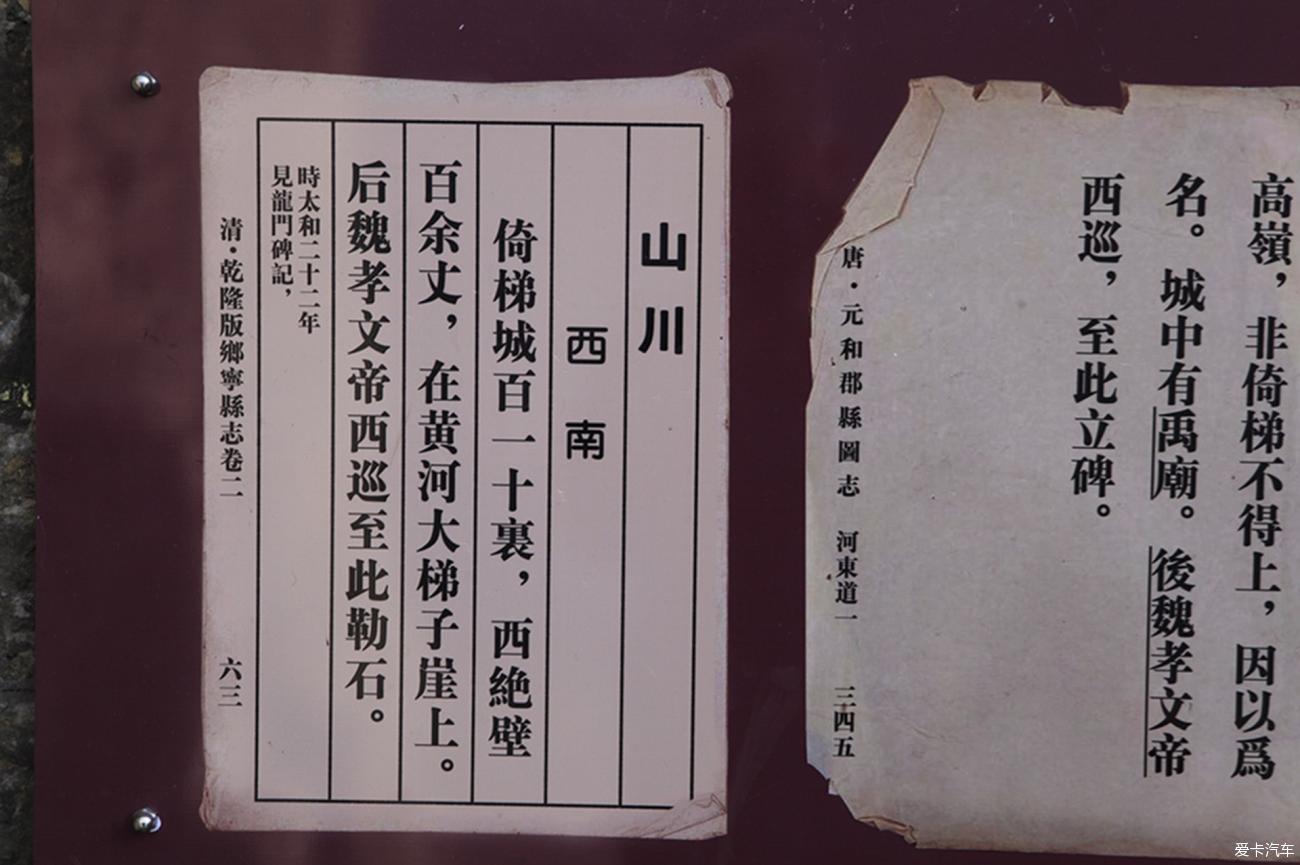 高嶺，非倚梯不得上，因以爲
名。城中有禹廟。後魏孝文帝
西巡，至此立碑。
唐·元和郡縣圖志 河東道一 三四五
山川
西南
倚梯城百一十裏，西絶壁
百余丈，在黄河大梯子崖上。
后魏孝文帝西巡至此勒石。
時太和二十二年
見龍門碑記，
清·乾隆版鄉寧縣志卷二 六三
爱卡汽车